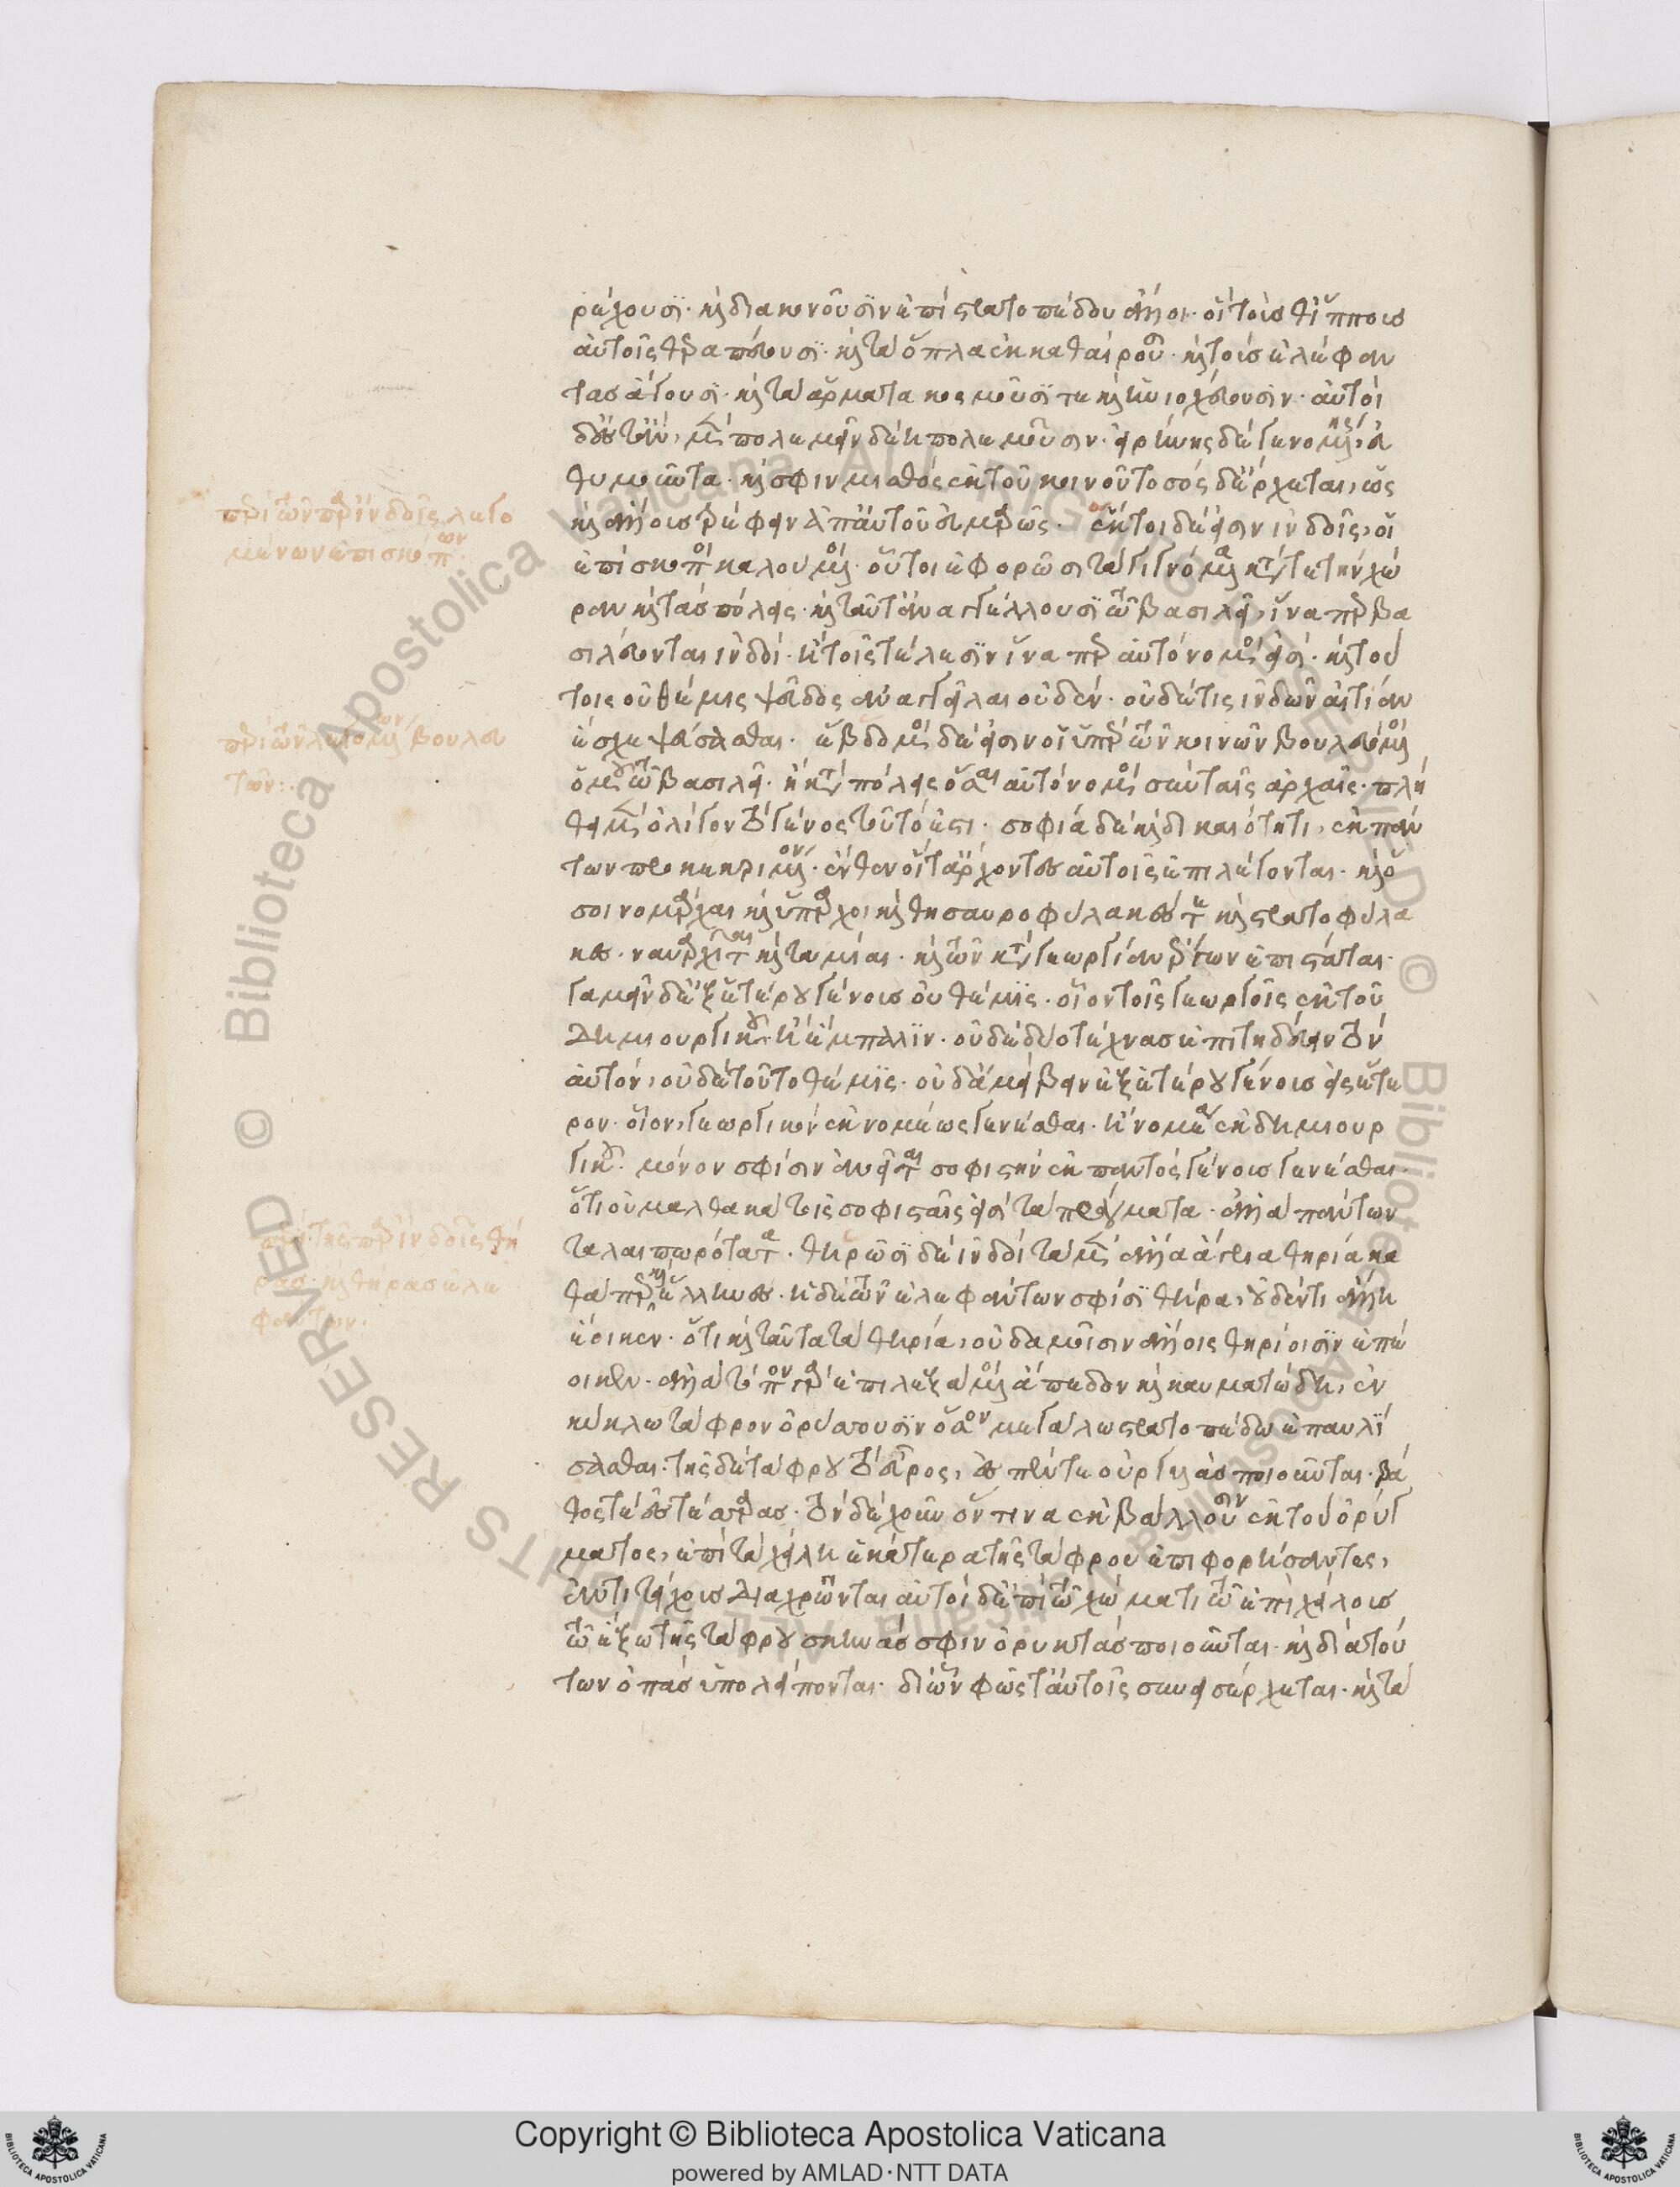 ρέχουσϊ· καὶ διακονοῦσϊν ἐπὶ στρατοπέδου ἄλλοι· οἳ τούς θ' ἵππους
αὐτοῖς θεραπεύουσϊ· καὶ τὰ ὅπλα ἐκκαθαίρουσι· καὶ τοὺς ἐλέφαν
τας ἄγουσι· καὶ τὰ ἅρματα κοσμοῦσϊ τε καὶ ἡνιοχεύουσιν· αὐτοὶ
δ' ἔστ' ἂν μὲν πολεμεῖν δέη πολεμοῦσιν· εἰρήνης δὲ γενομένης, εὐ
θυμοῦνται· καὶ σφιν μισθὸς ἐκ τοῦ κοινοῦ τοσόσδ' ἔρχεται, ὡς
καὶ ἄλλους τρέφειν ἀπ' αὐτοῦ εὐμαρῶς· ἕκτοι δέ εἰσιν ἰνδοῖς, οἱ
ἐπίσκοποι καλούμενοι· οὗτοι ἐφορῶσι τὰ γιγνόμενα κατά τε τὴν χώ
ραν καὶ τὰς πόλεις· καὶ ταῦτ' ἀναγγέλλουσϊ τῶ βασιλεῖ, ἵνα περ βα
σιλεύονται ἰνδοί· ἢ τοῖς τέλεσϊν ἵνα περ αὐτόνομοι εἰσί· καὶ τού
τοις οὐ θέμις ψεῦδος ἀναγγεῖλαι οὐδέν· οὐδέ τις ἰνδῶν αἰτίαν
ἔσχε ψεύσασθαι· ἕβδομοι δέ εἰσιν οἱ ὑπὲρ τῶν κοινῶν βουλευόμενοι
ὁμοῦ τῶ βασιλεῖ· ἢ κατὰ πόλεις ὅσαι αὐτόνομοι σὺν ταῖς ἀρχαῖς· πλή
θει μὲν ὀλίγον τὸ γένος τοῦτό ἐστι· σοφία δὲ καὶ δικαιότητι, ἐκ πάν
των προκεκριμένον· ἔνθεν οἵ τ' ἄρχοντες αὐτοῖς ἐπιλέγονται· καὶ ὅ
σοι νομάρχαι καὶ ὕπαρχοι καὶ θησαυροφύλακές τε καὶ στρατοφύλα
κες· ναύαρχοί τε καὶ ταμίαι· καὶ τῶν κατὰ γεωργίαν ἔργων ἐπιστάται·
γαμεῖν δ' ἐξ ἑτέρου γένους οὐ θέμϊς· οἷον τοῖς γεωργοῖς ἐκ τοῦ
δημιουργικοῦ· ἢ ἔμπαλϊν· οὐδὲ δύο τέχνας ἐπιτηδεύειν τὸν
αὐτόν, οὐδὲ τοῦτο θέμϊς· οὐδ' ἀμείβειν ἐξ ἑτέρου γένους εἰς ἕτε
ρον· οἷον, γεωργικὸν ἐκ νομέως γενέσθαι· ἢ νομέα ἐκ δημιουρ
γικοῦ· μόνον σφίσιν ἀνεῖται σοφιστὴν ἐκ παντὸς γένους γενέσθαι·
ὅτι οὐ μαλθακὰ τοῖς σοφισταῖς εἰσὶ τὰ πράγματα· ἀλλὰ πάντων
ταλαιπωρότατα· θηρῶσϊ δὲ ἰνδοὶ τὰ μὲν ἄλλα ἄγρια θηρία κα
θάπερ καὶ ἕλληνες· ἡ δὲ τῶν ἐλεφάντων σφίσϊ θήρα, οὐδέν τι ἄλλη
ἔοικεν· ὅτι καὶ ταῦτα τὰ θηρία, οὐδαμοῖσιν ἄλλοις θηρίοισϊν ἐπέ
οικεν· ἀλλὰ τόπον γὰρ ἐπιλεξάμενοι ἄπεδον καὶ καυματώδη, ἐν
κύκλω τάφρον ὀρύσσουσϊν ὅσον μεγάλω στρατοπέδω ἐπαυλΐ
σασθαι· τῆς δὲ τάφρου τὸ εὖρος, ἐς πέντε ὀργυιὰς ποιοῦνται· βά
θος τε ἐς τέσσαρας· τὸν δὲ χοῦν ὅν τινα ἐκβάλλουσιν ἐκ τοῦ ὀρύγ
ματος, ἐπὶ τὰ χείλη ἑκάτερα τῆς τάφρου ἐπιφορήσαντες,
ἀντὶ τείχους διαχρῶνται αὐτοὶ δ' ἐπὶ τῶ χώματι τῶ ἐπὶ χείλους
τῶ ἔξω τῆς τάφρου σκηνάς σφιν ὀρυκτὰς ποιοῦνται· καὶ διὰ τού
των ὀπὰς ὑπολείπονται· δι' ὧν φῶς τ' αὐτοῖς συνεισέρχεται· καὶ τὰ
περὶ τῶν παρ' ἰνδοῖς λεγο
μένων ἐπισκόπων·
περὶ τῶν λεγομένων βουλευ
τῶν:·
περὶ τῆς παρ' ἰνδοῖς θή
ρας· καὶ θήρας ἐλε
φάντων·
Copyright © Biblioteca Apostolica Vaticana
powered by AMLAD·NTT DATA